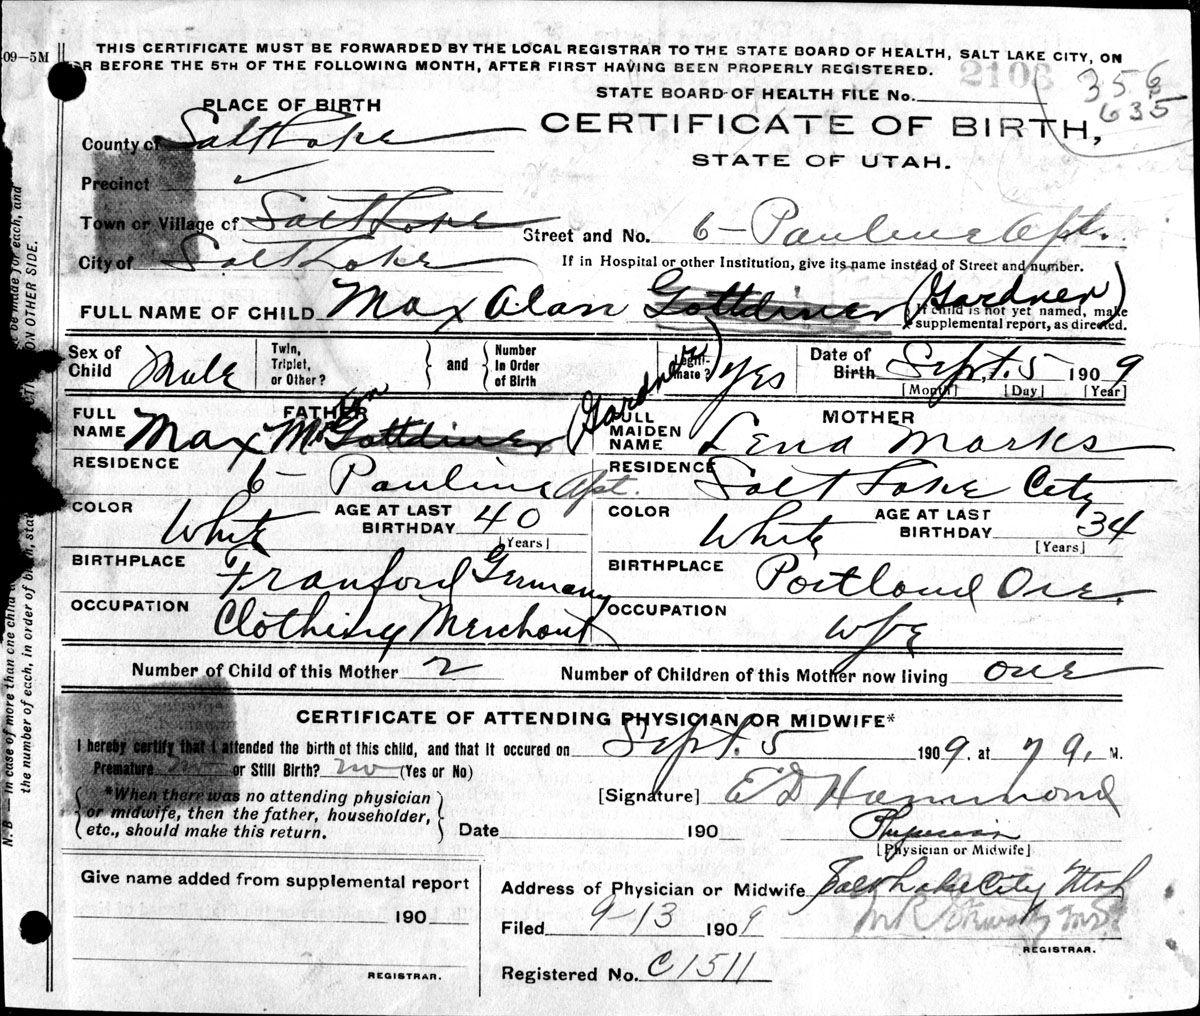 09—5M
THIS CERTIFICATE MUST BE FORWARDED BY THE LOCAL REGISTRAR TO THE STATE BOARD OF HEALTH, SALT LAKE CITY, ON
OR BEFORE THE 5TH OF THE FOLLOWING MONTH, AFTER FIRST HAVING BEEN PROPERLY REGISTERED.
2106
356
635
STATE BOARD OF HEALTH FILE No.
PLACE OF BIRTH
CERTIFICATE OF BIRTH,
STATE OF UTAH.
County of Salt Lake
Precinct ✓
Town or Village of Salt Lake
Street and No. 6 - Pauline Apt.
City of Salt Lake
If in Hospital or other Institution, give its name instead of Street and number.
FULL NAME OF CHILD Max Alan Gottdiner (Gardner)
If child is not yet named, make
supplemental report, as directed.
Sex of Child Male
Twin, Triplet, or Other?
and
Number In Order of Birth
Legitimate? Yes
Date of Birth Sept. 5 1909
[Month] [Day] [Year]
FATHER
FULL NAME Max M Gottdiner (Gardner)
RESIDENCE 6 - Pauline Apt.
COLOR White
AGE AT LAST BIRTHDAY 40
[Years]
BIRTHPLACE Franford Germany
OCCUPATION Clothing Merchant
MOTHER
FULL MAIDEN NAME Lena Marks
RESIDENCE Salt Lake City
COLOR White
AGE AT LAST BIRTHDAY 34
[Years]
BIRTHPLACE Portland Ore.
OCCUPATION wife
Number of Child of this Mother 2
Number of Children of this Mother now living one
CERTIFICATE OF ATTENDING PHYSICIAN OR MIDWIFE*
I hereby certify that I attended the birth of this child, and that it occured on Sept. 5 1909, at 7 a. M.
Premature no or Still Birth? no (Yes or No)
*When there was no attending physician
or midwife, then the father, householder,
etc., should make this return.
[Signature] E D Hammond
Date 190
Physician
[Physician or Midwife]
Give name added from supplemental report
190
REGISTRAR.
Address of Physician or Midwife Salt Lake City Utah
Filed 9-13 1909
REGISTRAR.
Registered No. C1511
N. B — In case of more than one child
be made for each, and
the number of each, in order of birth,
ON OTHER SIDE.